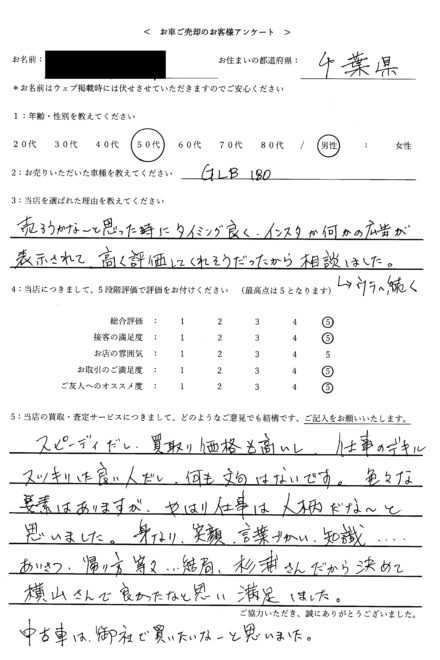 ＜　お車ご売却のお客様アンケート　＞
お名前： お住まいの都道府県： 千葉県
＊お名前はウェブ掲載時には伏せさせていただきますのでご安心ください
１：年齢・性別を教えてください
２０代　３０代　４０代　５０代　６０代　７０代　８０代　／　男性　：　女性
２：お売りいただいた車種を教えてください GLB 180
３：当店を選ばれた理由を教えてください
売ろうかな～と思った時にタイミング良く、インスタか何かの広告が
表示されて、高く評価してくれそうだったから相談しました。
４：当店につきまして、５段階評価で評価をお付けください　（最高点は５となります） ↳ウラへ続く
総合評価：　１　２　３　４　５
接客の満足度：　１　２　３　４　５
お店の雰囲気：　１　２　３　４　５
お取引のご満足度：　１　２　３　４　５
ご友人へのオススメ度：　１　２　３　４　５
５：当店の買取・査定サービスにつきまして、どのようなご意見でも結構です、ご記入をお願いいたします。
スピーディだし、買取り価格も高いし、仕事のデキル
スッキリした良い人だし、何も文句はないです。色々な
要素はありますが、やはり仕事は人柄だな～と
思いました。身なり、笑顔、言葉づかい、知識....
あいさつ、帰り方等々...結局、杉浦さんだから決めて
横山さんで良かったなと思い満足しました。
ご協力いただき、誠にありがとうございました。
中古車は、御社で買いたいなーと思いました。